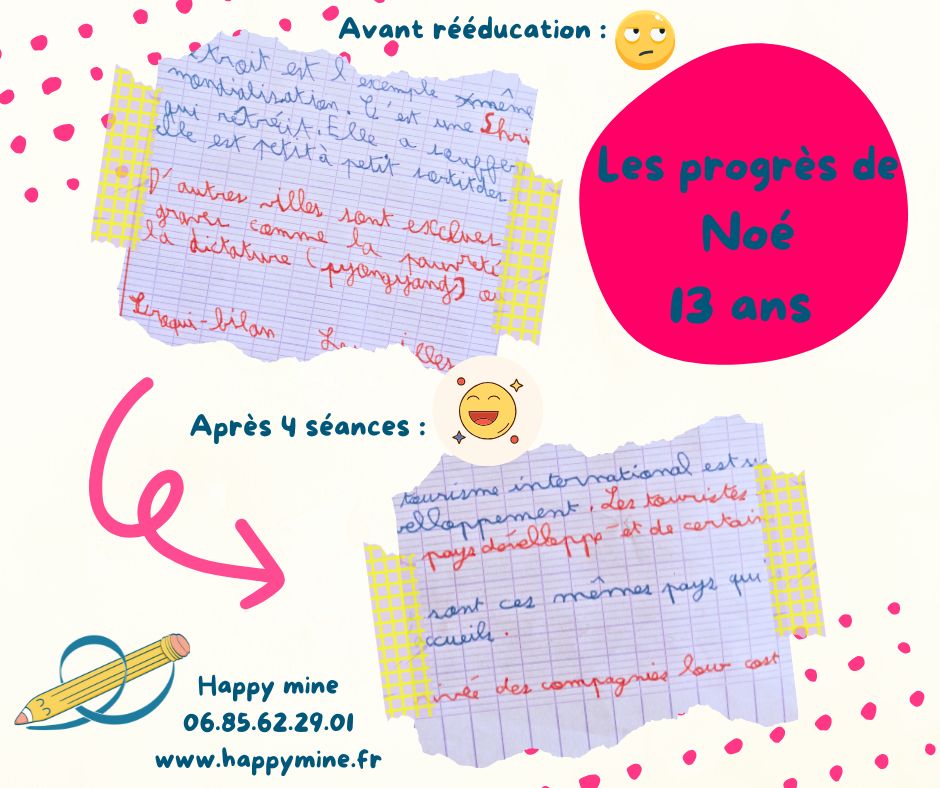 Avant rééducation :
Les progrès de
Noé
13 ans
est l'exemple même
mondialisation. C'est une Shri
qui rétréit. Elle a souffer
elle est petit à petit sortitdes
D'autres villes sont exclues
graves comme la pauvreté
la dictature (pyongyang) ou
bilan
Après 4 séances :
tourisme international est
velloppement. Les touristes
pays dévellopps et de certain
sont ces mêmes pays qui
ccueils.
ivée des compagnies low cost
Happy mine
06.85.62.29.01
www.happymine.fr